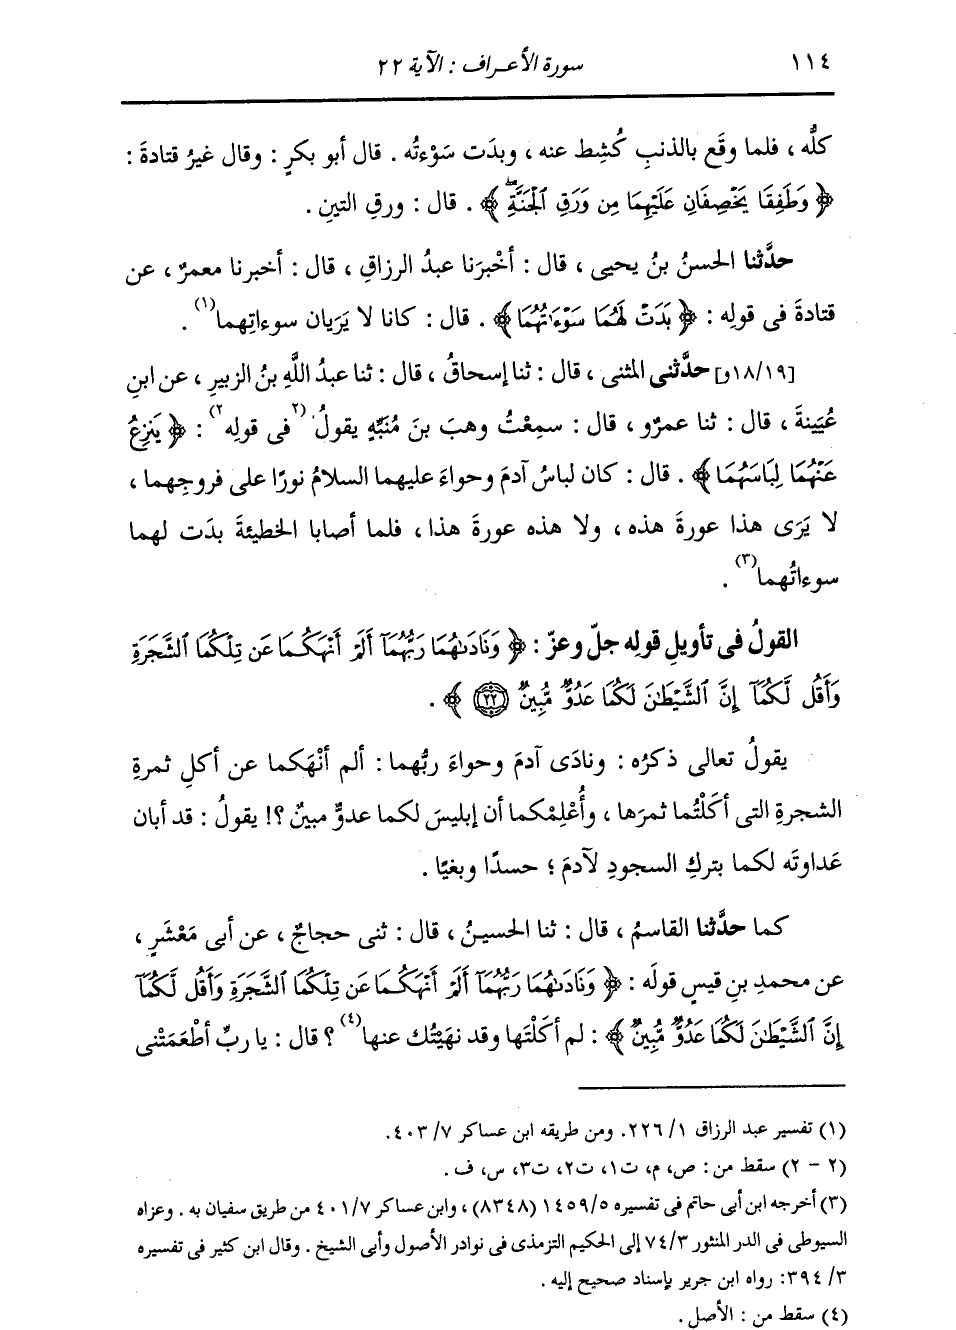 ١١٤ سورة الأعراف : الآية ٢٢
كلُّه ، فلما وقَع بالذنبِ كُشِط عنه ، وبدَت سَوْءتُه . قال أبو بكرٍ : وقال غيرُ قتادةَ :
﴿ وَطَفِقَا يَخْصِفَانِ عَلَيْهِمَا مِن وَرَقِ ٱلْجَنَّةِۖ ﴾ . قال : ورقِ التينِ .
حدَّثنا الحسنُ بنُ يحيى ، قال : أخْبرَنا عبدُ الرزاقِ ، قال : أخبرنا معمرٌ ، عن
قتادةَ فى قولِه : ﴿ بَدَتْ لَهُمَا سَوْءَٰتُهُمَا ﴾ . قال : كانا لا يَرَيان سوءاتِهما(١) .
[١٨/١٩و] حدَّثنى المثنى ، قال : ثنا إسحاقُ ، قال : ثنا عبدُ اللَّهِ بنُ الزبيرِ ، عن ابنِ
عُيَينةَ ، قال : ثنا عمرٌو ، قال : سمِعْتُ وهبَ بنَ مُنَبِّهٍ يقولُ (٢فى قولِه٢) : ﴿ يَنزِعُ
عَنْهُمَا لِبَاسَهُمَا ﴾ . قال : كان لباسُ آدمَ وحواءَ عليهما السلامُ نورًا على فروجِهما ،
لا يَرَى هذا عورةَ هذه ، ولا هذه عورةَ هذا ، فلما أصابا الخطيئةَ بدَت لهما
سوءاتُهما(٣) .
القولُ فى تأويلِ قولِه جلّ وعزّ : ﴿ وَنَادَىٰهُمَا رَبُّهُمَآ أَلَمْ أَنْهَكُمَا عَن تِلْكُمَا ٱلشَّجَرَةِ
وَأَقُل لَّكُمَآ إِنَّ ٱلشَّيْطَٰنَ لَكُمَا عَدُوٌّ مُّبِينٌ ٢٢ ﴾ .
يقولُ تعالى ذكرُه : ونادَى آدمَ وحواءَ ربُّهما : ألم أنْهَكما عن أكلِ ثمرةِ
الشجرةِ التى أكَلْتُما ثمرَها ، وأُعْلِمْكما أن إبليسَ لكما عدوٌّ مبينٌ ؟! يقولُ : قد أبان
عَداوتَه لكما بتركِ السجودِ لآدمَ ؛ حسدًا وبغيًا .
كما حدَّثنا القاسمُ ، قال : ثنا الحسينُ ، قال : ثنى حجاجٌ ، عن أبى مَعْشَرٍ ،
عن محمدِ بنِ قيسٍ قولَه : ﴿ وَنَادَىٰهُمَا رَبُّهُمَآ أَلَمْ أَنْهَكُمَا عَن تِلْكُمَا ٱلشَّجَرَةِ وَأَقُل لَّكُمَآ
إِنَّ ٱلشَّيْطَٰنَ لَكُمَا عَدُوٌّ مُّبِينٌ ﴾ : لم أكَلْتَها وقد نهَيْتُك عنها(٤) ؟ قال : يا ربِّ أطْعَمَتْنى
(١) تفسير عبد الرزاق ١/ ٢٢٦. ومن طريقه ابن عساكر ٧/ ٤٠٣.
(٢ - ٢) سقط من : ص، م، ت١، ت٢، ت٣، س، ف .
(٣) أخرجه ابن أبى حاتم فى تفسيره ١٤٥٩/٥ (٨٣٤٨) ، وابن عساكر ٤٠١/٧ من طريق سفيان به . وعزاه
السيوطى فى الدر المنثور ٧٤/٣ إلى الحكيم الترمذى فى نوادر الأصول وأبى الشيخ . وقال ابن كثير فى تفسيره
٣/ ٣٩٤: رواه ابن جرير بإسناد صحيح إليه .
(٤) سقط من : الأصل .